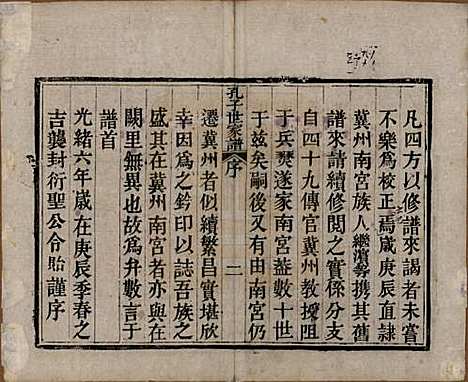 凡四方以修譜來謁者未嘗
不樂爲校正焉歲庚辰直隸
冀州南宮族人繼携其舊
譜來請續修閱之實係分支
自四十九傳官冀州教授阻
于兵燹遂家南宮葢數十世
于茲矣嗣後又有由南宮仍
孔子世家譜 序 二
遷冀州者似續繁昌實堪欣
幸因爲之鈐印以誌吾族之
盛其在冀州南宮者亦與在
闕里無異也故爲弁數言于
譜首
光緒六年歲在庚辰季春之
吉襲封衍聖公令貽謹序